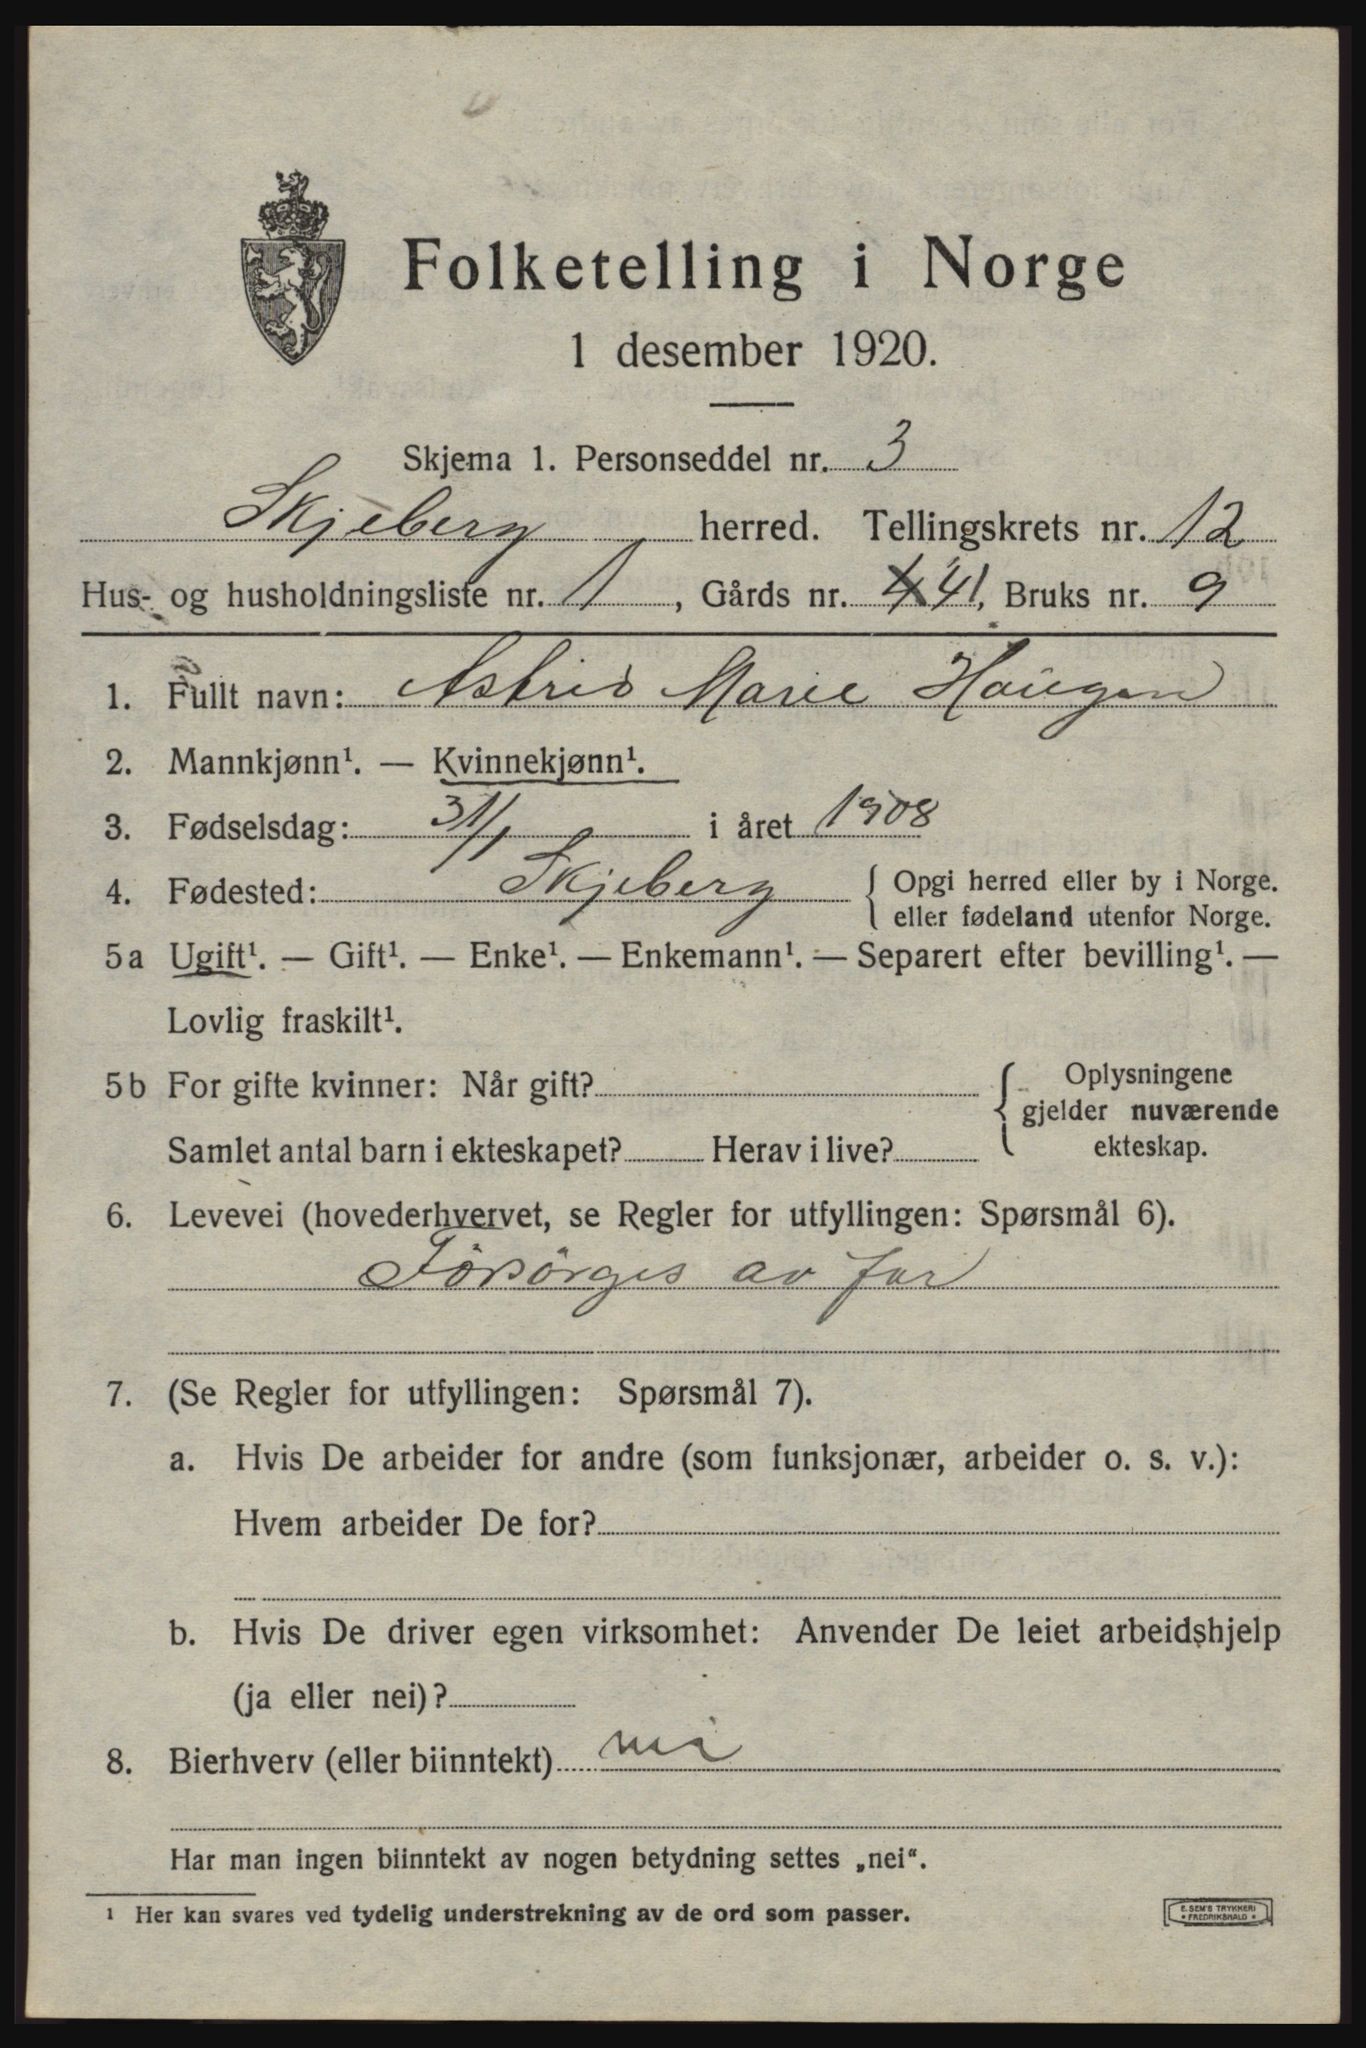 Folketelling i Norge
1 desember 1920.
Skjema 1. Personseddel nr. 3
Skjeberg herred. Tellingskrets nr. 12
Hus- og husholdningsliste nr. 1, Gårds nr. 4 41, Bruks nr. 9
1. Fullt navn: Astrid Marie Haugen
2. Mannkjønn¹. — Kvinnekjønn¹.
3. Fødselsdag: 31/1 i året 1908
4. Fødested: Skjeberg { Opgi herred eller by i Norge.
eller fødeland utenfor Norge.
5a Ugift¹. — Gift¹. — Enke¹. — Enkemann¹. — Separert efter bevilling¹. —
Lovlig fraskilt¹.
5b For gifte kvinner: Når gift? { Oplysningene
gjelder nuværende
Samlet antal barn i ekteskapet? Herav i live? ekteskap.
6. Levevei (hovederhvervet, se Regler for utfyllingen: Spørsmål 6).
Forsørges av far
7. (Se Regler for utfyllingen: Spørsmål 7).
a. Hvis De arbeider for andre (som funksjonær, arbeider o. s. v.):
Hvem arbeider De for?
b. Hvis De driver egen virksomhet: Anvender De leiet arbeidshjelp
(ja eller nei)?
8. Bierhverv (eller biinntekt) nei
Har man ingen biinntekt av nogen betydning settes „nei“.
¹ Her kan svares ved tydelig understrekning av de ord som passer.
E. SEM'S TRYKKERI
• FREDRIKSHALD •